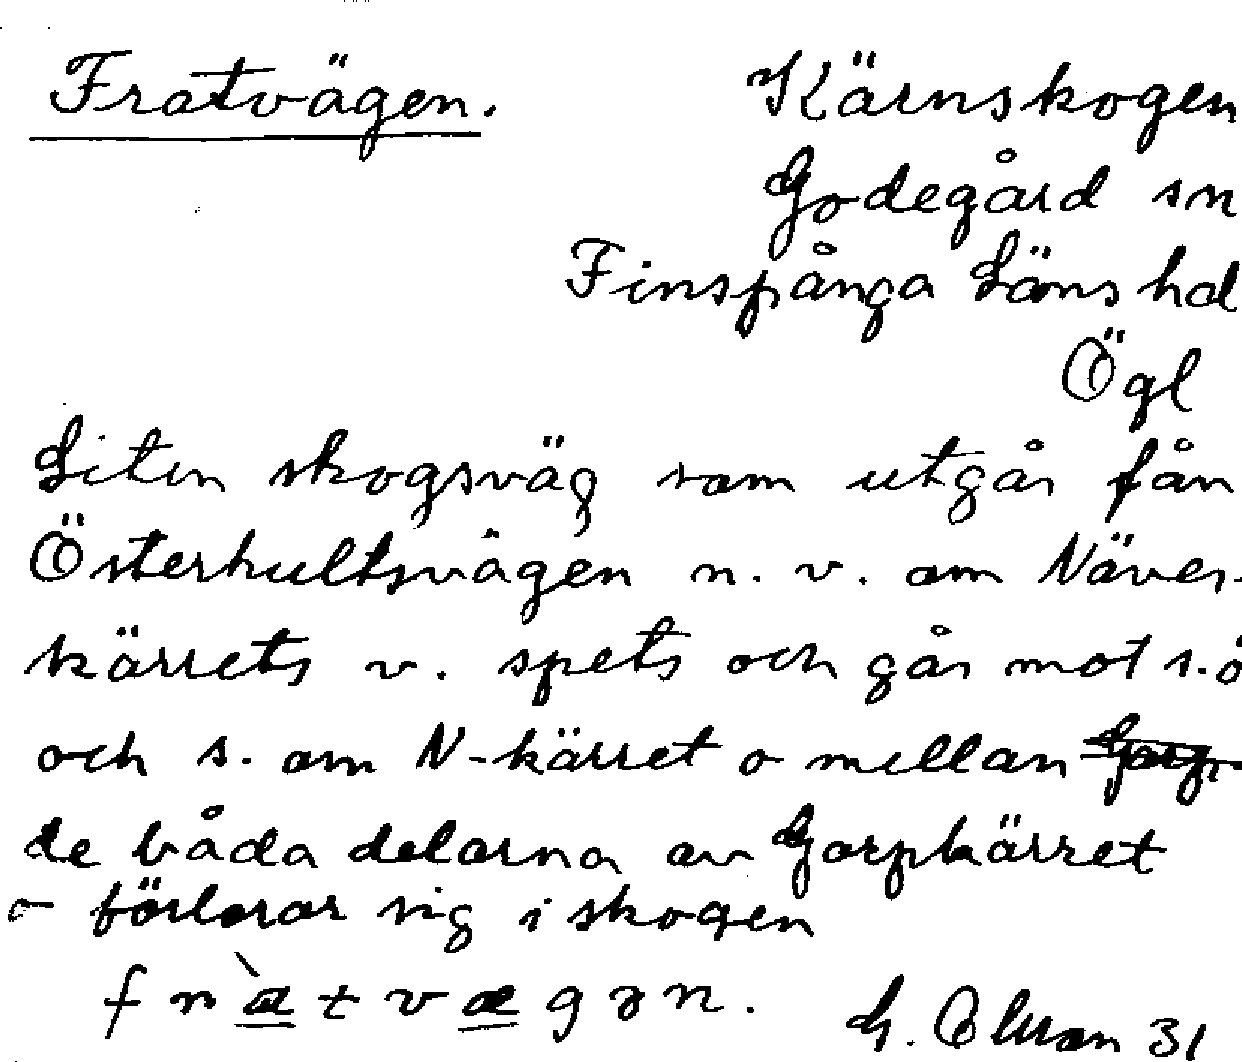 Fratvägen.
Kärnskogen
Godegård sn
Finspånga Läns hd
Ögl
Liten skogsväg som utgår från
Österhultsvägen n. v. om Näver-
kärrets v. spets och går mot s.ö
och s. om N-kärret o mellan
de båda delarna av Gorpkärret
o förlorar sig i skogen
fràtvægən.
31